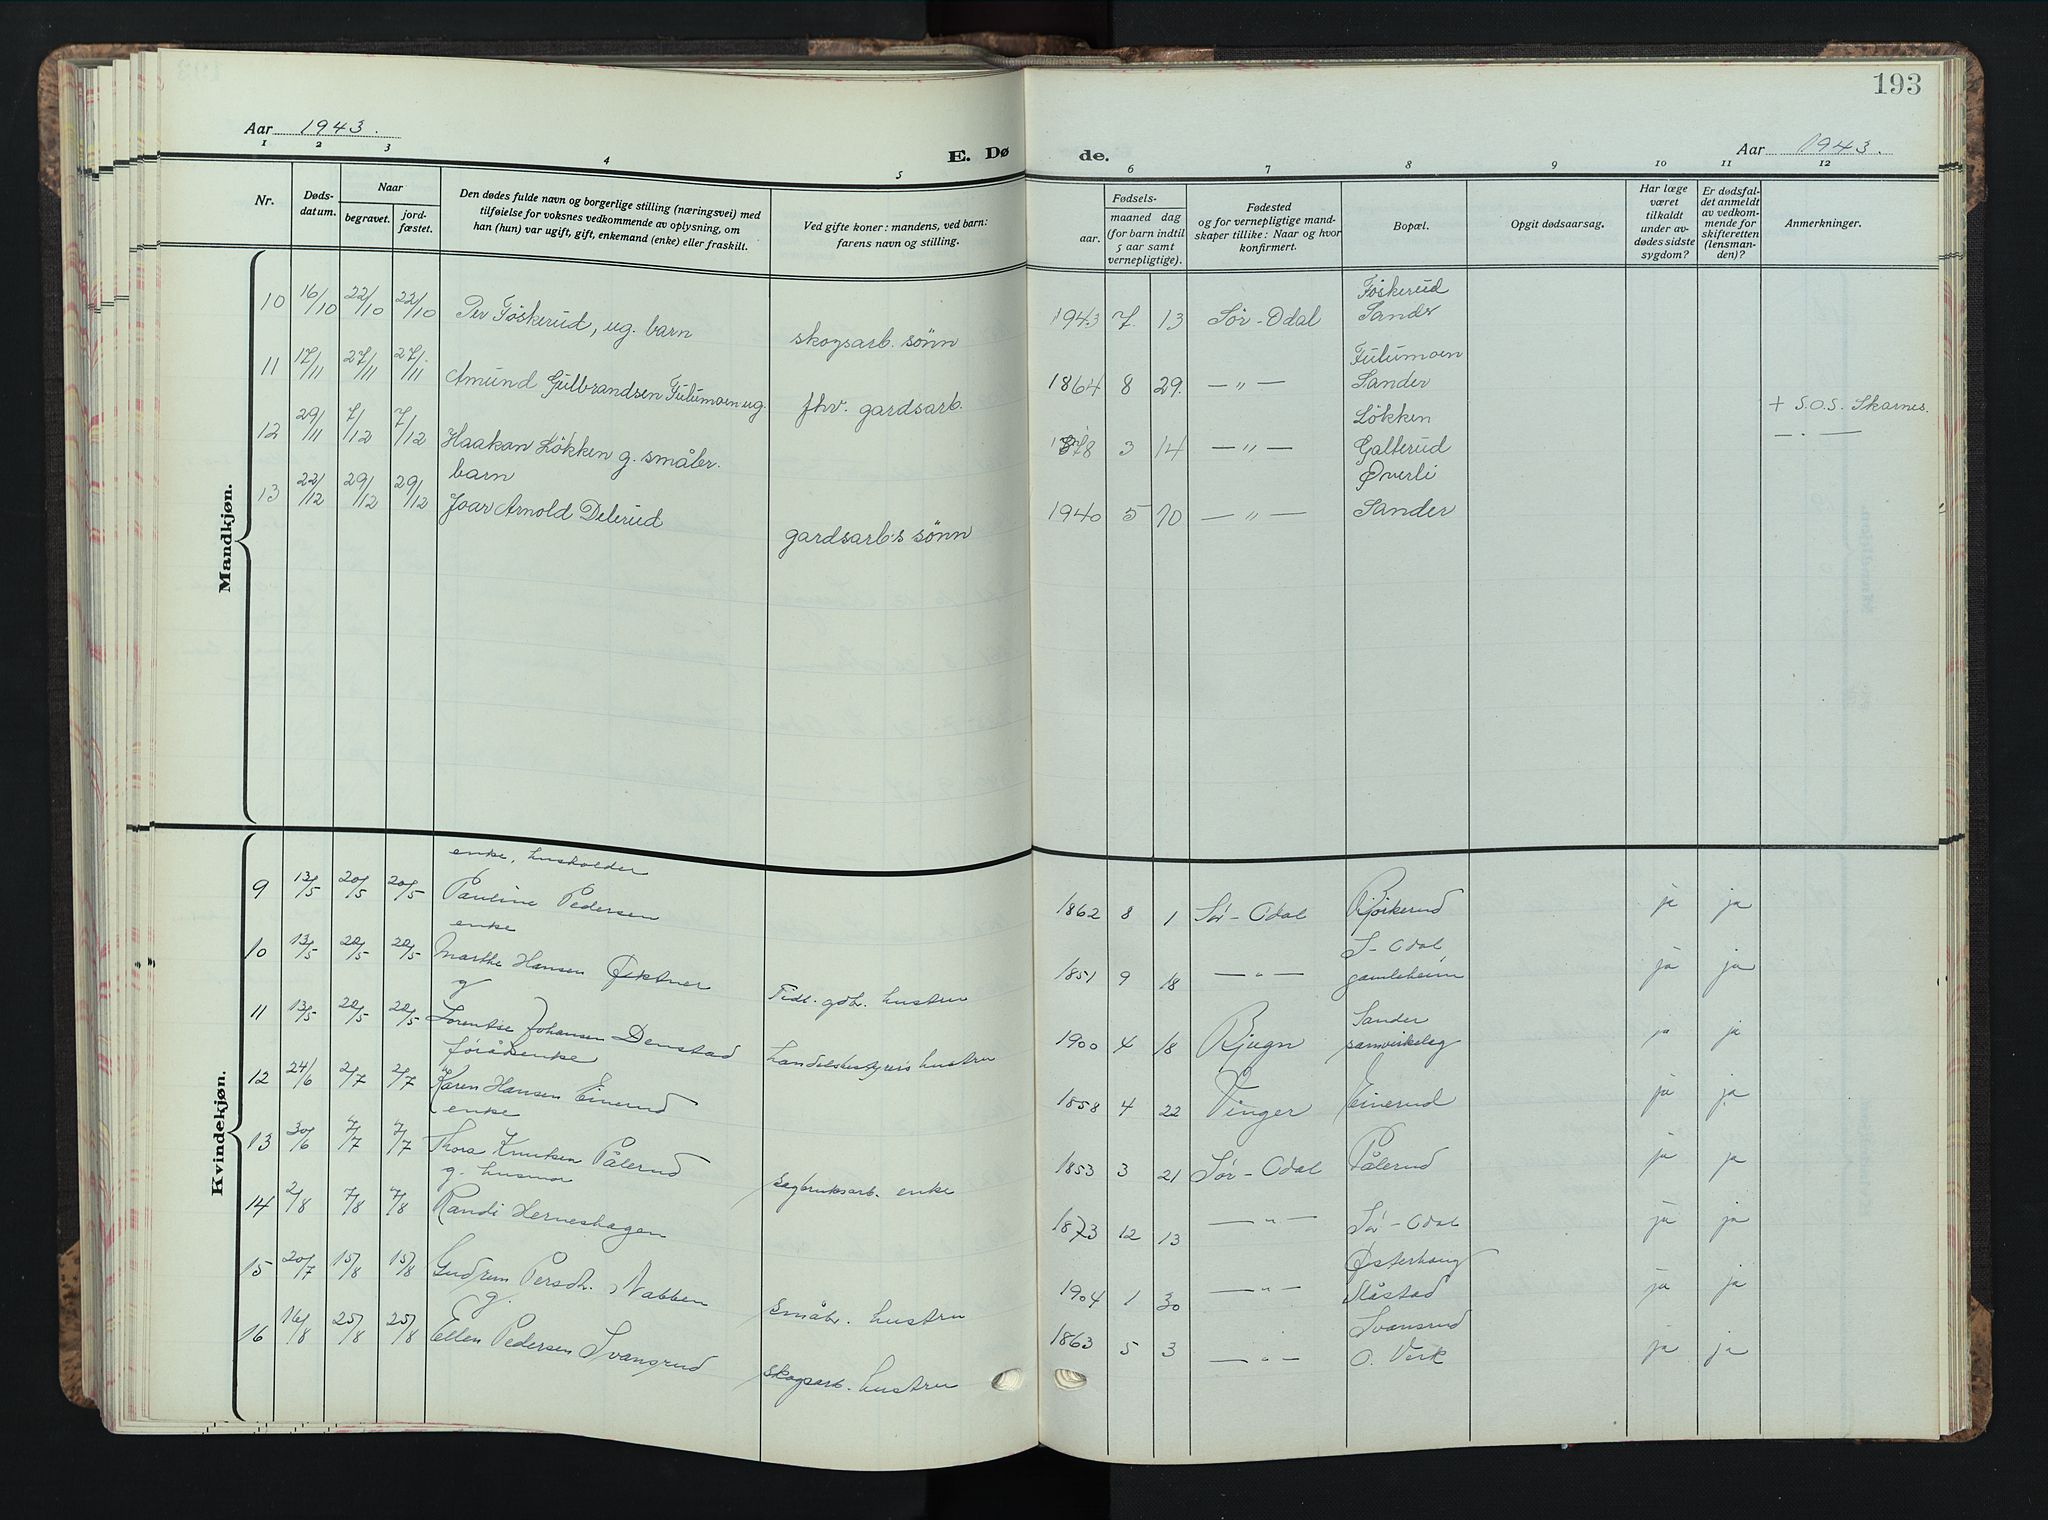 193
Aar 1943.
E. Døde.
Aar 1943.
1 2 3 4 5 6 7 8 9 10 11 12
Nr.
Døds-
datum.
Naar
begravet.
jord-
fæstet.
Den dødes fulde navn og borgerlige stilling (næringsvei) med
tilføielse for voksnes vedkommende av oplysning, om
han (hun) var ugift, gift, enkemand (enke) eller fraskilt.
Ved gifte koner: mandens, ved barn:
farens navn og stilling.
Fødsels-
aar.
maaned dag
(for barn indtil
5 aar samt
vernepligtige).
Fødested
og for vernepligtige mand-
skaper tillike: Naar og hvor
konfirmert.
Bopæl.
Opgit dødsaarsag.
Har læge
været
tilkaldt
under av-
dødes sidste
sygdom?
Er dødsfal-
det anmeldt
av vedkom-
mende for
skifteretten
(lensman-
den)?
Anmerkninger.
Mandkjøn.
10 16/10 22/10 22/10 Per Föskerud, ug. barn skogsarb. sønn 1943 7. 13 Sör-Odal Föskerud
Sander
11 17/11 27/11 27/11 Amund Gulbrandsen Fulumoen ug. fhv. gardsarb. 1864 8 29. — „ — Fulumoen
Sander
+ S.O.S. Skarnes.
12 29/11 7/12 7/12 Haakan Lökken g. småbr. 1878 3 14 — „ — Lökken
Galterud
— . —
barn
13 22/12 29/12 29/12 Joar Arnold Delerud gardsarb.s sönn 1940 5 10 — „ — Øverli
Sander
Kvindekjøn.
enke, husholder
9 13/5 20/5 20/5 Pauline Pedersen 1862 8 1 Sør-Odal Bjørkerud ja ja
enke
10 13/5 20/5 20/5 Marthe Hansen Øktner Tidl. gdbr. hustru 1851 9 18 — „ — S-Odal
gamleheim ja ja
g
11 13/5 20/5 20/5 Lorentse Johansen Demstad handelsbestyrers hustru 1900 4 18 Bjugn Sander
samvirkelag ja ja
forådsenke
12 24/6 2/7 2/7 Karen Hansen Einerud 1858 4 22 Vinger Einerud ja ja
enke
13 30/6 7/7 7/7 Thora Knutsen Pålerud Sagbruksarb. enke 1853 3 21 Sør-Odal Pålerud ja ja
g. husmor
14 2/8 7/8 7/8 Randi Herneshagen 1873 12 13 — „ — Sør-Odal ja ja
15 20/7 15/8 15/8 Gudrun Persdh. Nabben Småbr. hustru 1904 1 30 — „ — Østerhaug
Slåstad ja ja
g.
16 16/8 25/8 25/8 Ellen Pedersen Svansrud Skogsarb. hustru 1863 5 3 — „ — Svansrud
O. Verk ja ja